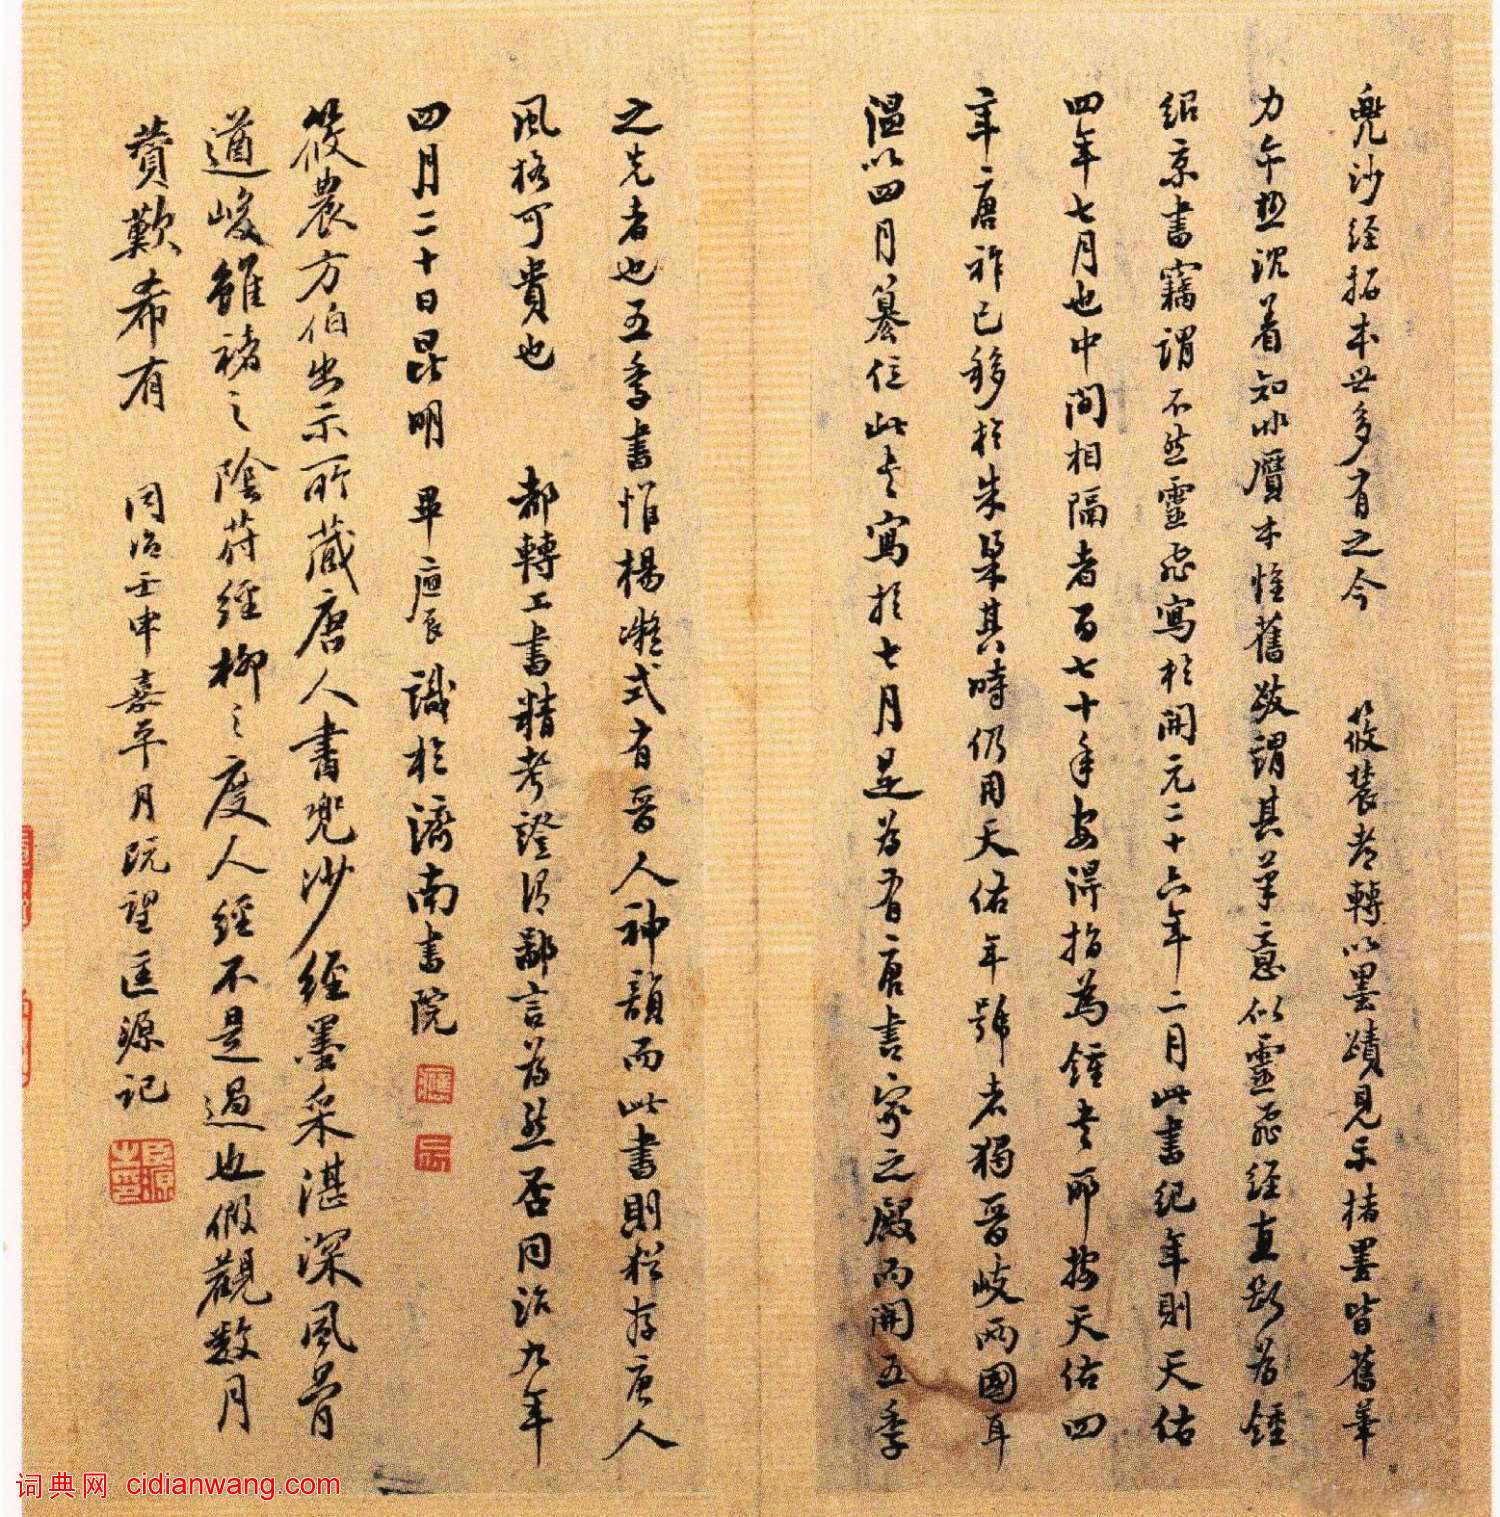 兜沙经拓本世多有之今 筱農都轉以墨蹟見示楮墨皆舊筆
力亦極沈着知非贋本惟舊跋謂其筆意似靈飛經直斷爲鍾
紹京書竊謂不然靈飛寫於開元二十六年二月此書紀年則天佑
四年七月也中間相隔者百七十年安得指爲鍾書耶按天佑四
年唐祚已移於朱梁其時仍用天佑年號者獨晉岐兩國耳
溫以四月篡位此書寫於七月是爲有唐書家之殿而開五季
之先者也五季書惟楊凝式有晉人神韻而此書則猶存唐人
風格可貴也 都轉工書精考證得鄙言爲然否同治九年
四月二十日昆明 畢應辰識於濟南書院
筱農方伯出示所藏唐人書兜沙經墨采湛深風骨
遒峻雖褚之陰符經柳之度人經不是過也假觀數月
贊歎希有 同治壬申嘉平月既望匡源記
词典网 cidianwang.com